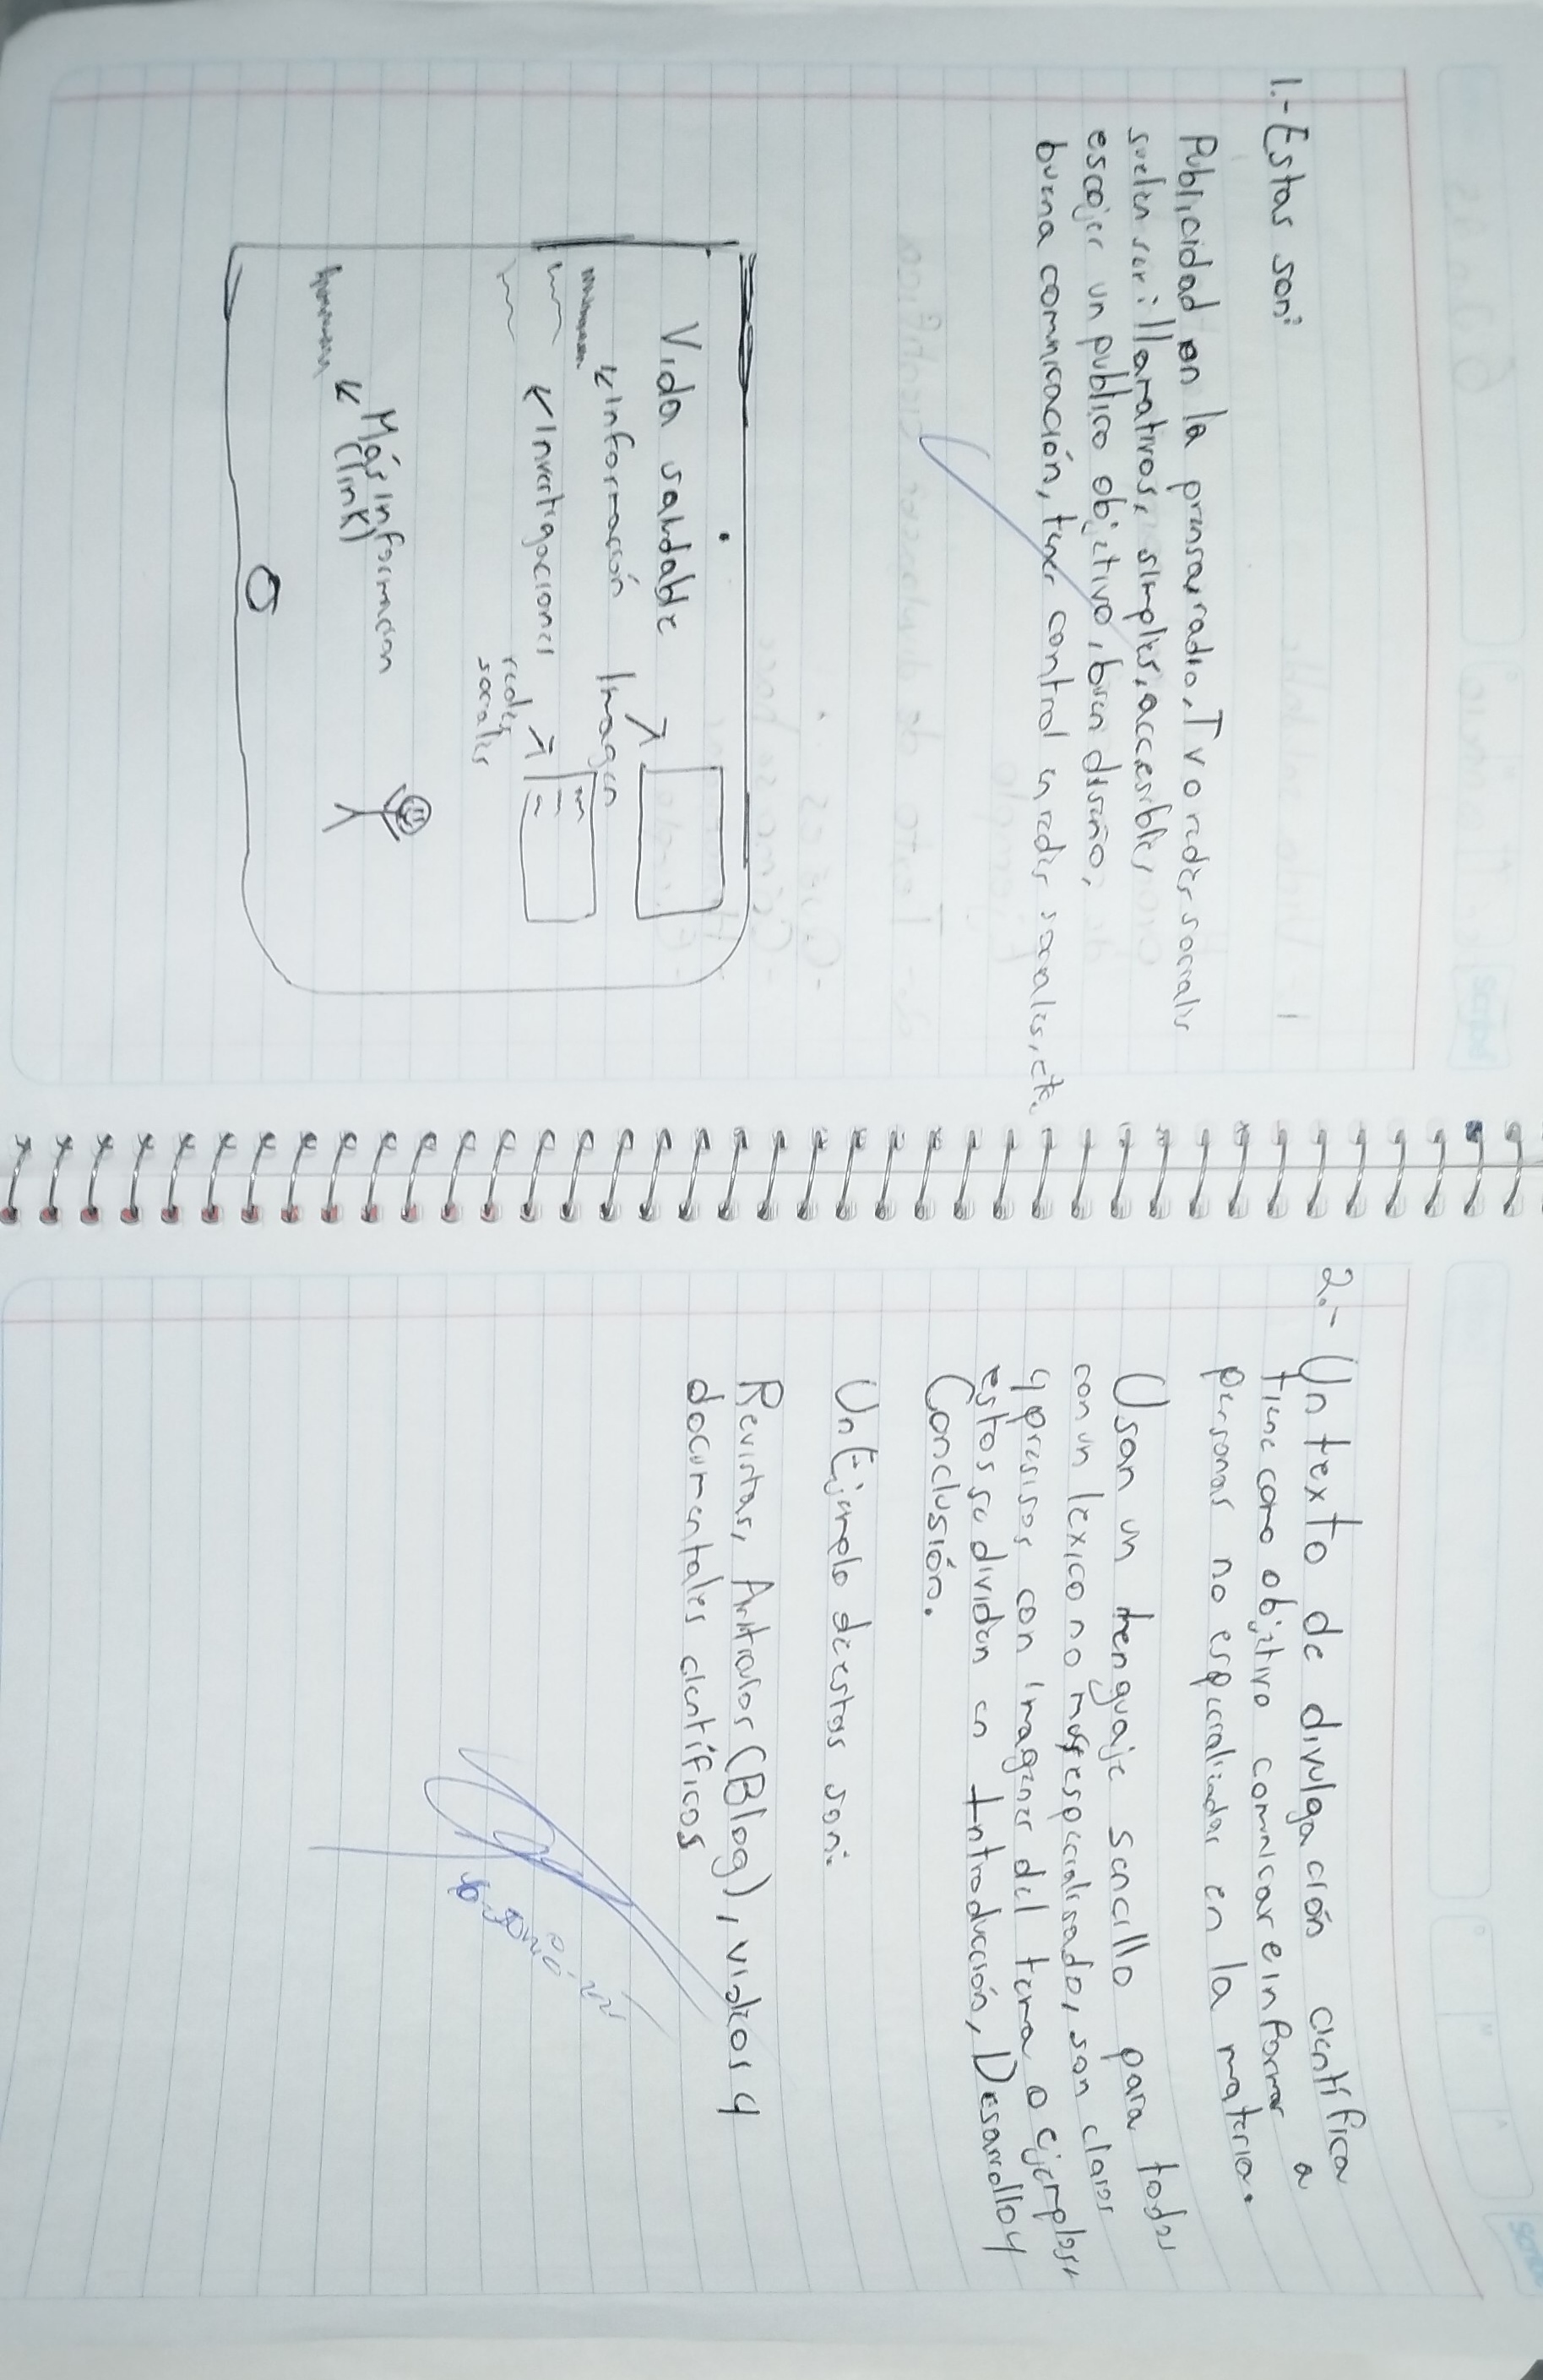 1.- Estas son:
Publicidad en la prensa, radio, TV o redes sociales
suelen ser: llamativos, simples, accesibles
escojer un publico objetivo, buen diseño,
buena comunicación, tener control en redes sociales, etc.
Vida saludable
Información
Imagen
Investigaciones
redes
sociales
Más informacion
(link)
2.- Un texto de divulgación cientifica
tiene como objetivo comunicar e informar a
personas no especializadas en la materia.
Usan un lenguaje sencillo para todos
con un lexico no muy especialisado, son claros
y presisos con imagenes del tema o ejemplos,
estos se dividen en Introducción, Desarrollo y
Conclusión.
Un Ejemplo de estos son:
Revistas, Articulos (Blog), videos y
documentales cientificos